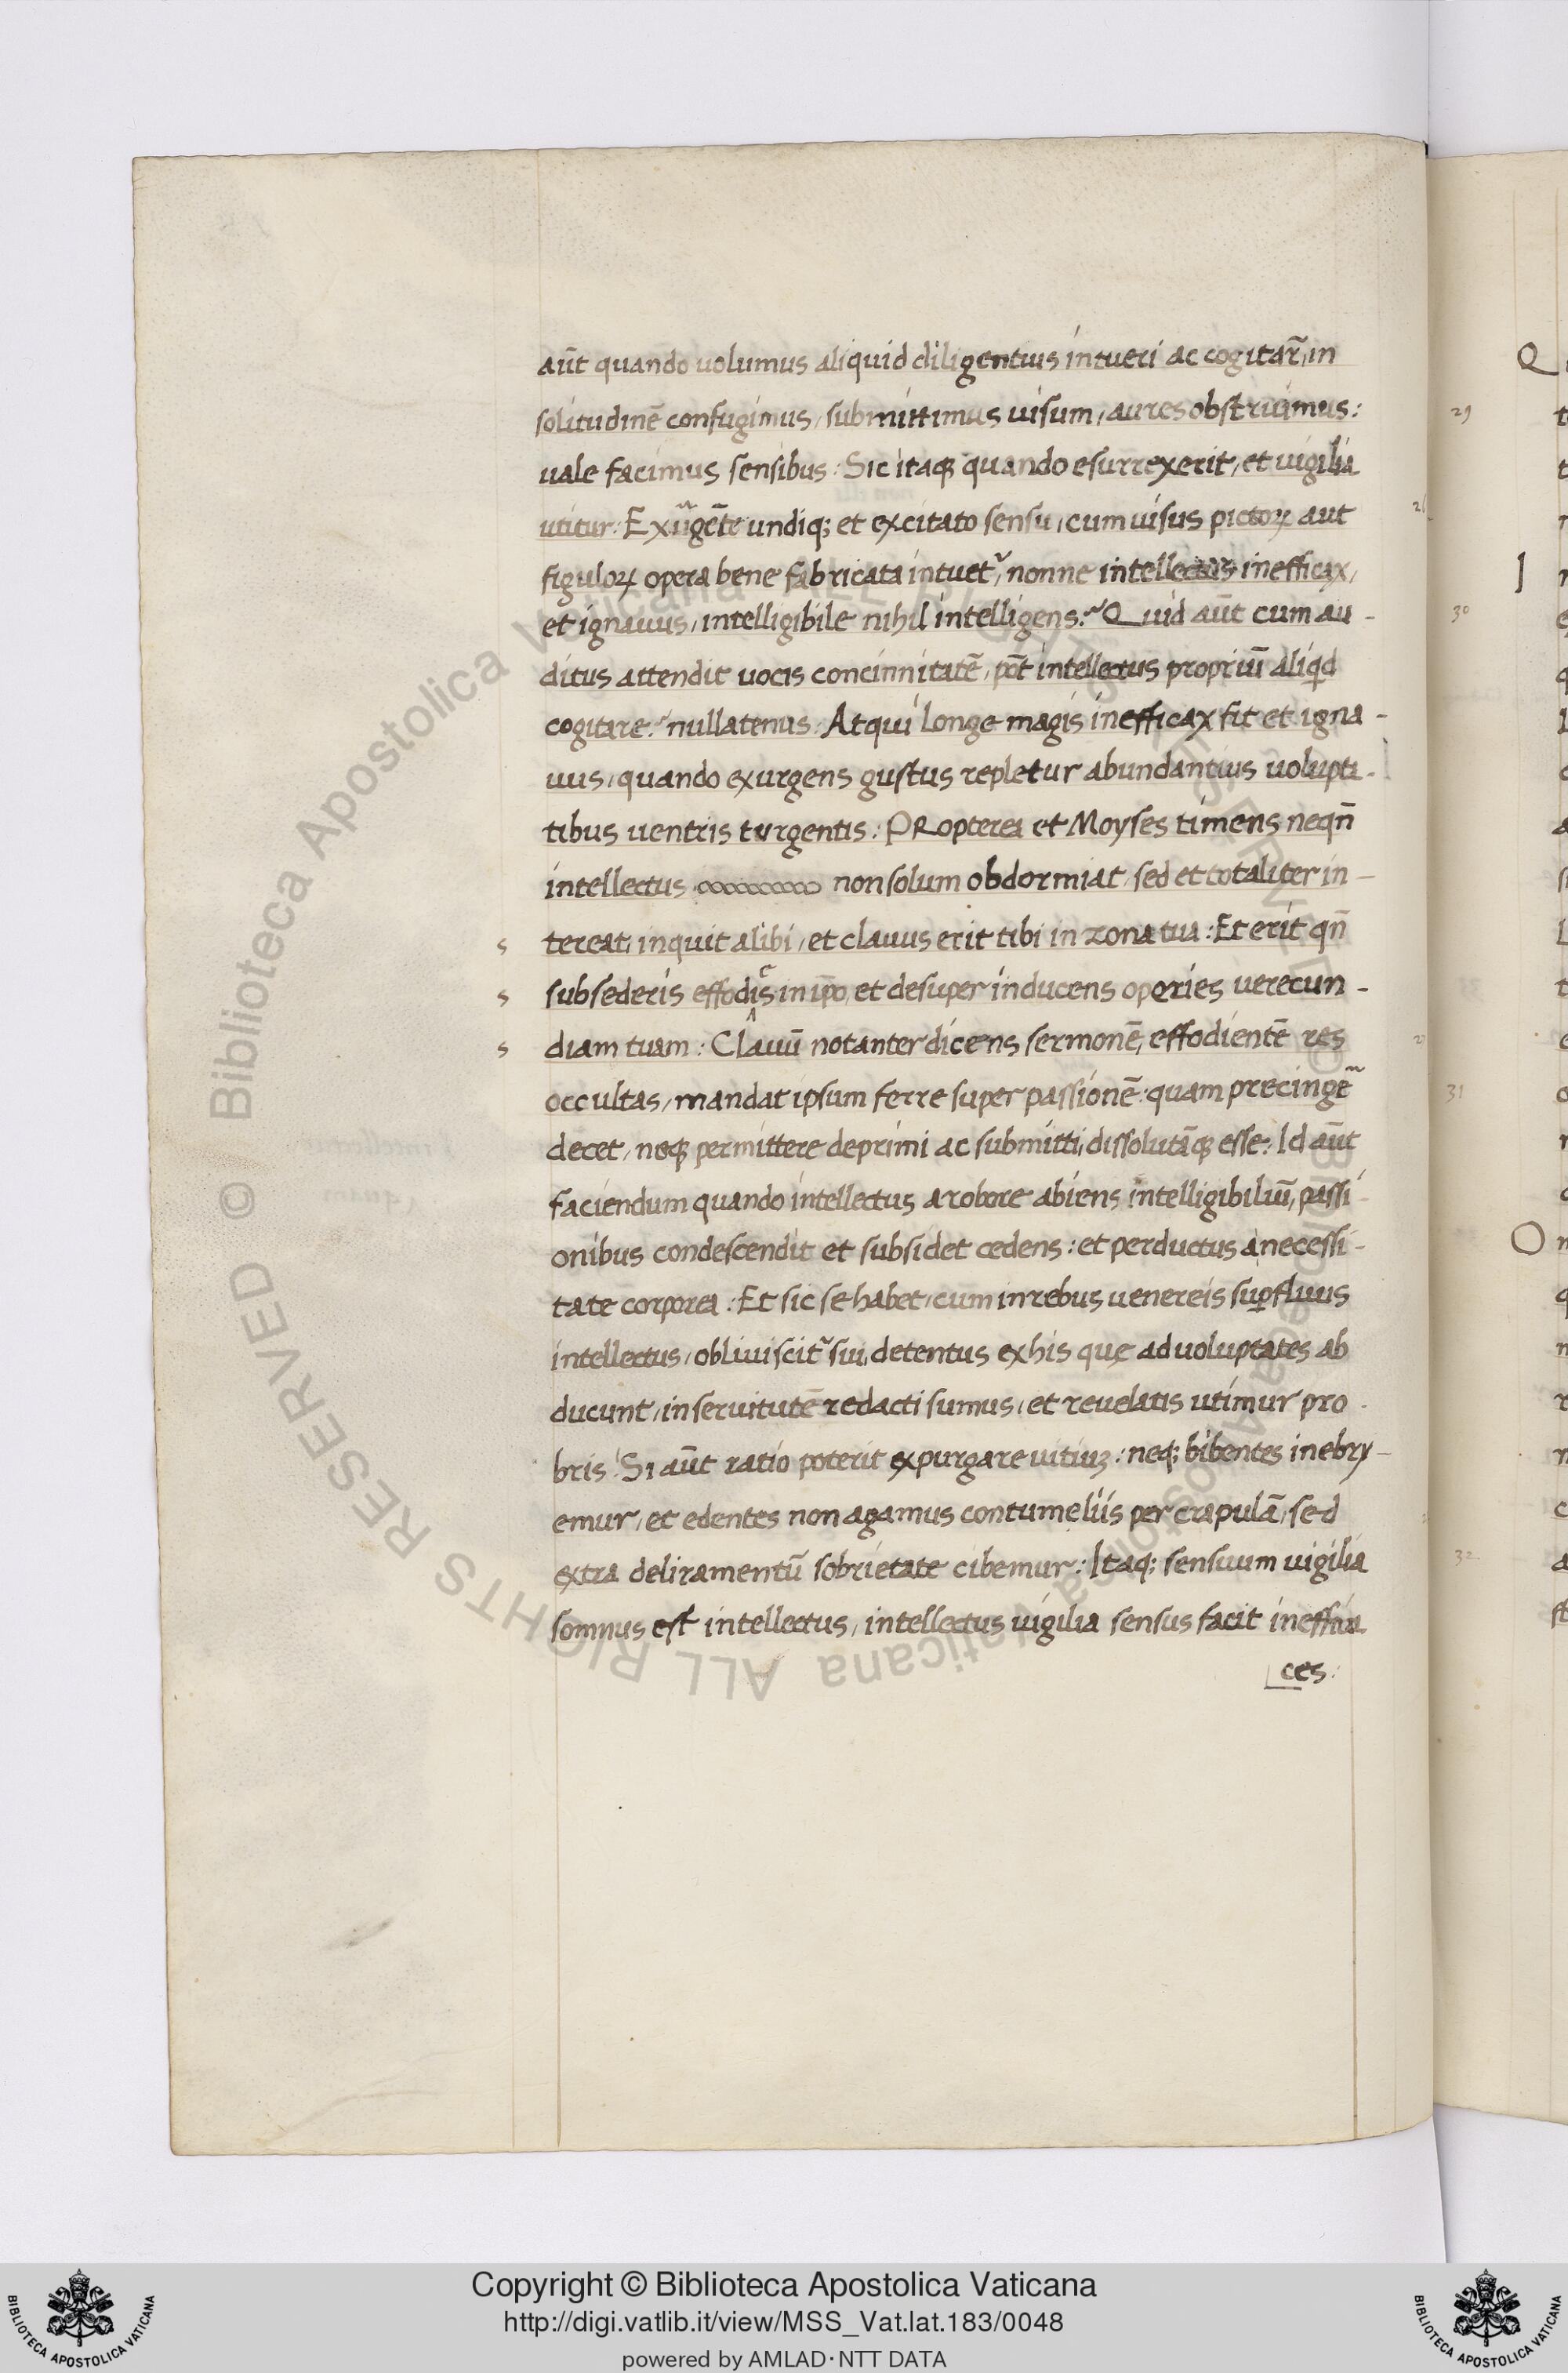 aūt quando uolumus aliquid diligentius intueri ac cogitar̄, in
solitudinē confugimus, submittimus uisum, aures obstruimus:
uale facimus sensibus: Sic itaqꝫ quando esurrexerit, et uigilia
utitur: Exu᷑gēte undiqꝫ et excitato sensu, cum uisus pictoꝝ aut
figuloꝝ opera bene fabricata intuet᷑, nonne intellectus inefficax,
et ignauus, intelligibile nihil intelligens? Quid aūt cum au-
ditus attendit uocis concinnitatē, pōt intellectus propriū aliqd
cogitare? nullatenus: Atqui longe magis inefficax fit et igna-
uus, quando exurgens gustus repletur abundantius uolupta-
tibus uentris turgentis: PRopterea et Moyses timens neqn̄
intellectus non solum obdormiat, sed et totaliter in-
s tereat, inquit alibi, et clauus erit tibi in zona tua: Et erit qn̄
s subsederis effodies in ip̄o, et desuper inducens operies uerecun-
s diam tuam: Clauū notanter dicens sermonē, effodientē res
occultas, mandat ipsum ferre super passionē: quam precinge᷑
decet, neqꝫ permittere deprimi ac submitti, dissolutāqꝫ esse: Id aūt
faciendum quando intellectus a robore abiens intelligibiliū, passi
onibus condescendit et subsidet cedens: et perductus a necessi-
tate corporea: Et sic se habet, cum in rebus uenereis suꝑfluus
intellectus, obliuiscit᷑ sui, detentus ex his quę ad uoluptates ab
ducunt, in seruitutē redacti sumus, et reuelatis utimur pro
bris: Si aūt ratio poterit expurgare uitiuꝫ: neqꝫ bibentes inebry-
emur, et edentes non agamus contumeliis per crapulā, sed
extra deliramentū sobrietate cibemur: Itaqꝫ sensuum uigilia
somnus est intellectus, intellectus uigilia sensus facit ineffica
ces:
Q
29
I
30
31
O
32
© Biblioteca Apostolica Vaticana ALL RIGHTS RESERVED
Copyright © Biblioteca Apostolica Vaticana
http://digi.vatlib.it/view/MSS_Vat.lat.183/0048
powered by AMLAD·NTT DATA
BIBLIOTECA APOSTOLICA VATICANA
BIBLIOTECA APOSTOLICA VATICANA